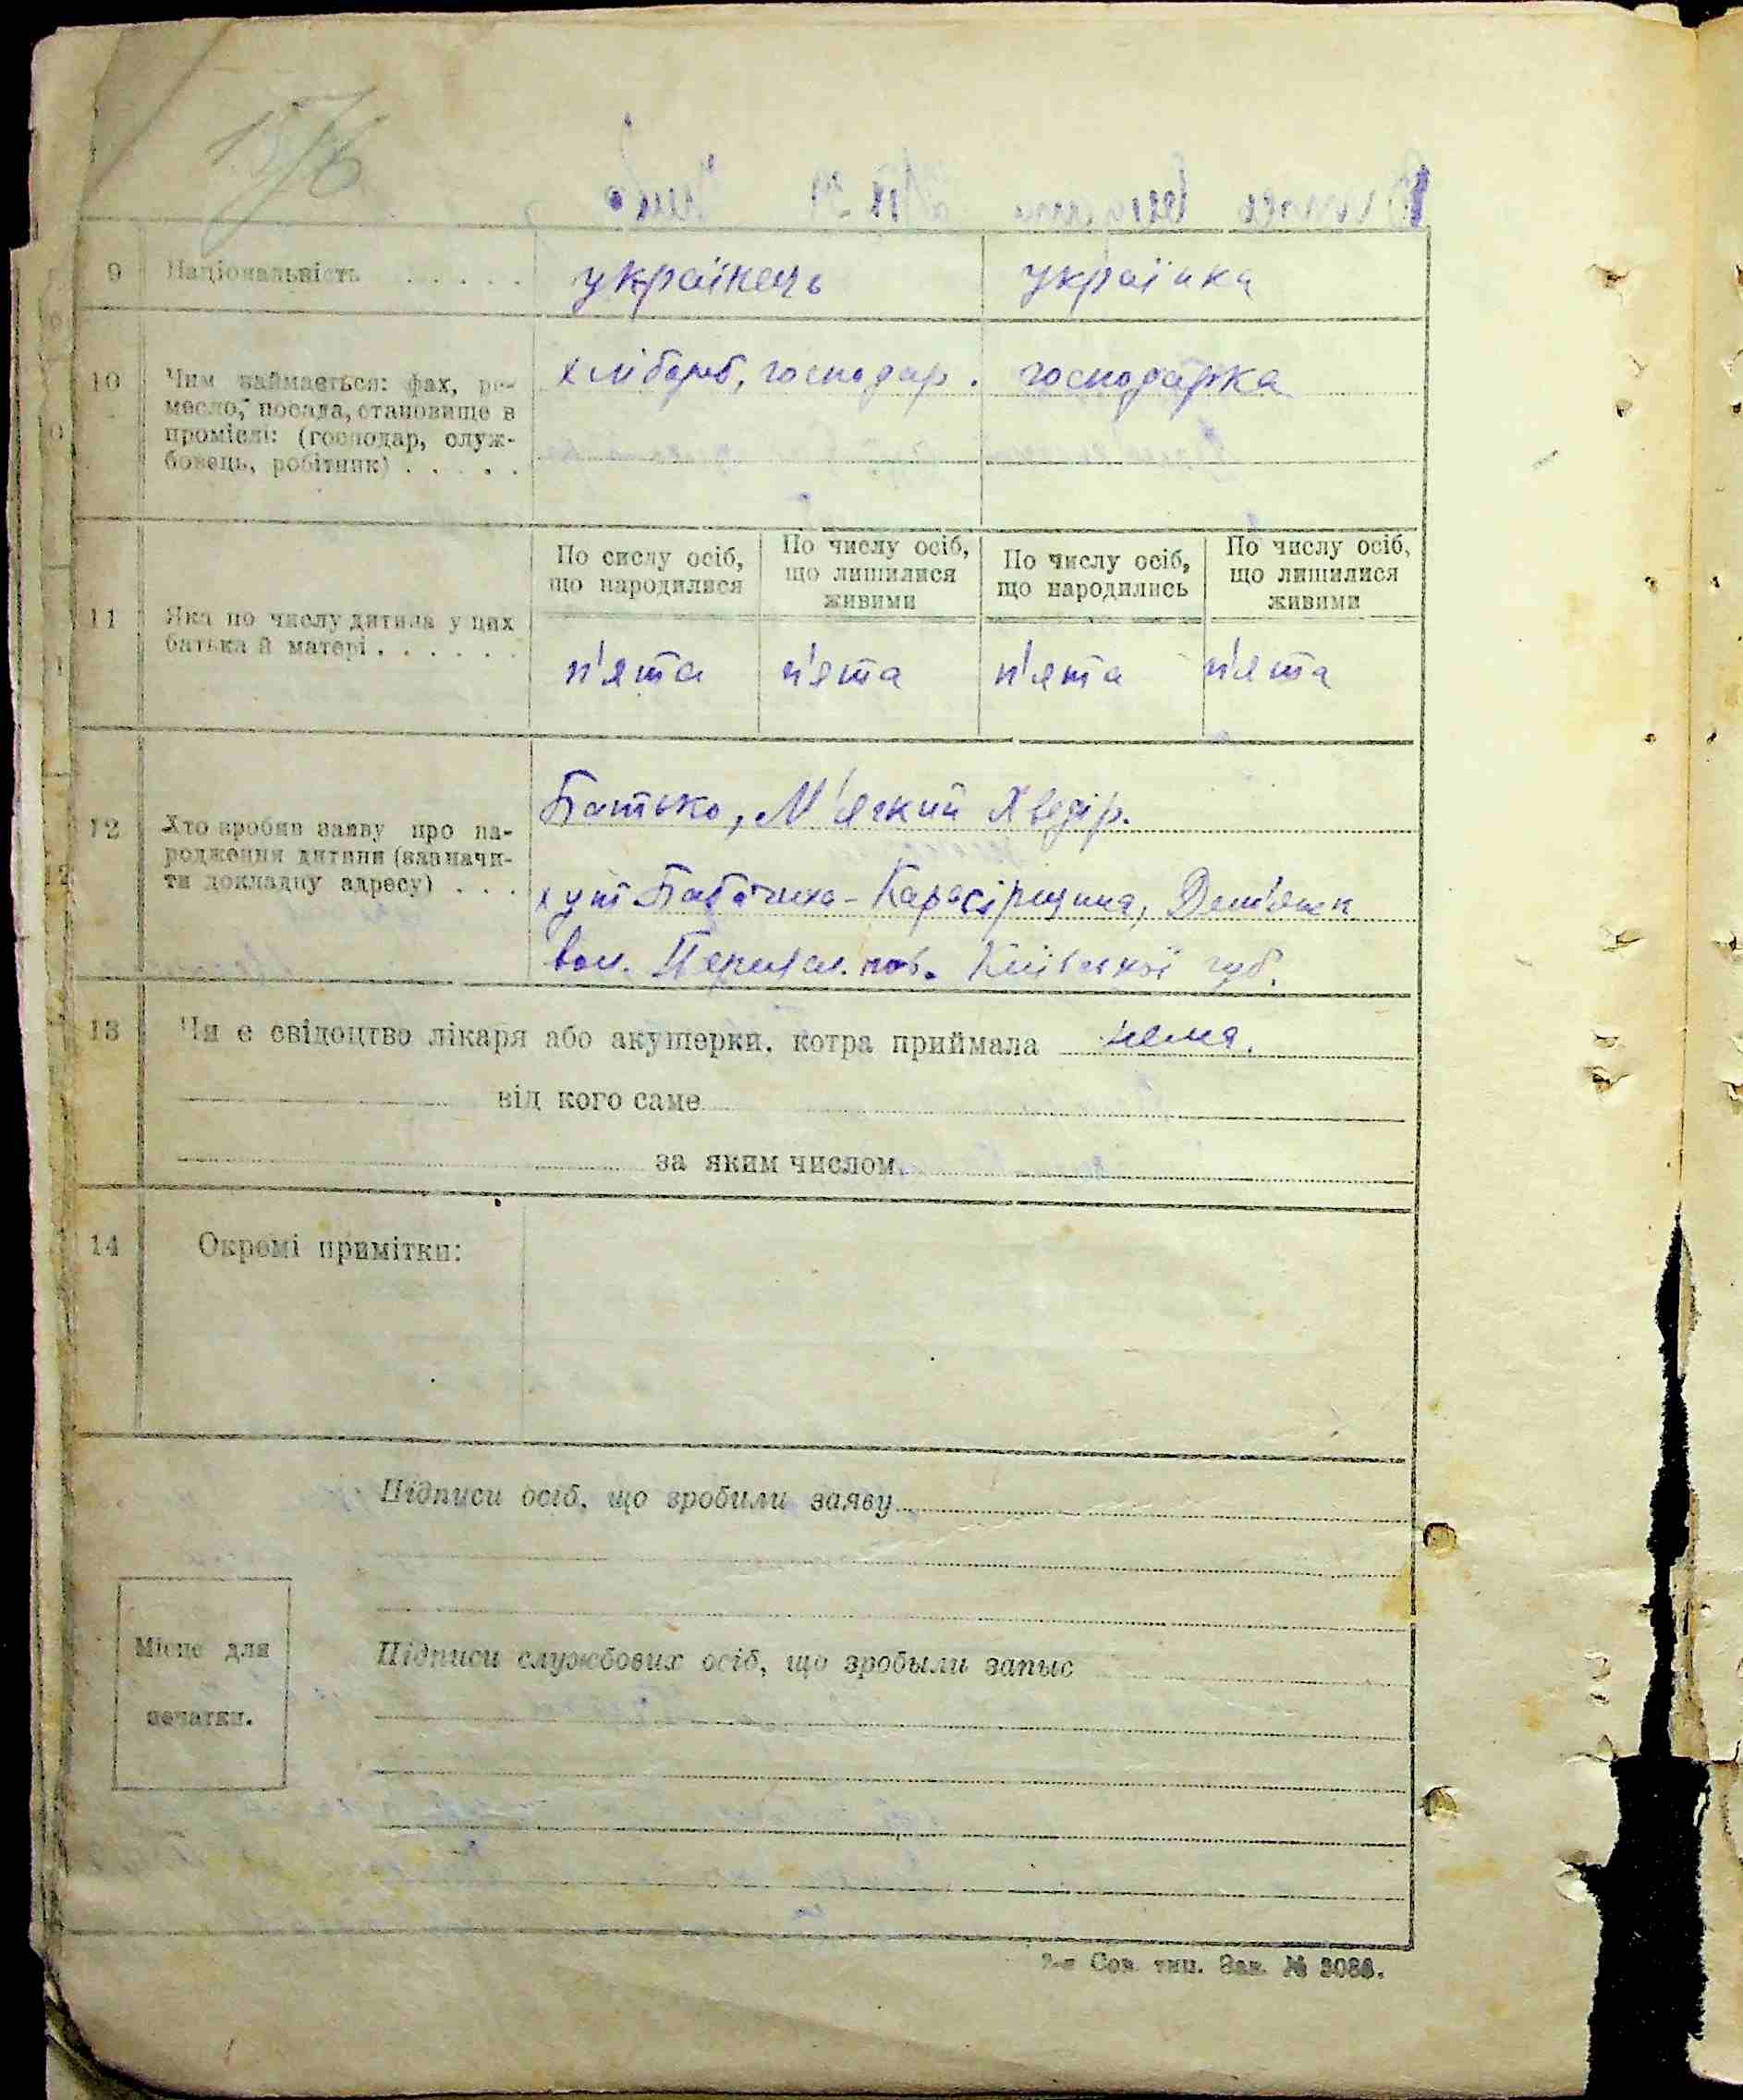 15/6
9 Національність . . . . . українець українка
10 Чим займається: фах, ре- хлібороб, господар. господарка
месло, посада, становище в
промислі: (господар, служ-
бовець, робітник) . . . . .
По сислу осіб, По числу осіб, По числу осіб, По числу осіб,
що народилися що лишилися що народились що лишилися
живими живими
11 Яка по числу дитина у цих
батька й матері . . . . . . п'ята п'ята п'ята п'ята
Батько, М'який Хведір.
12 Хто зробив заяву про на-
родження дитини (зазначи-
ти докладну адресу) . . . хут Бабачиха-
вол. пов. Київської губ.
13 Чи є свідоцтво лікаря або акушерки, котра приймала нема.
від кого саме
за яким числом
14 Окремі примітки:
Підписи осіб, що зробили заяву
Місце для
печатки.
Підписи службових осіб, що зробыли запыс
2-я Сов. тип. Зак. №